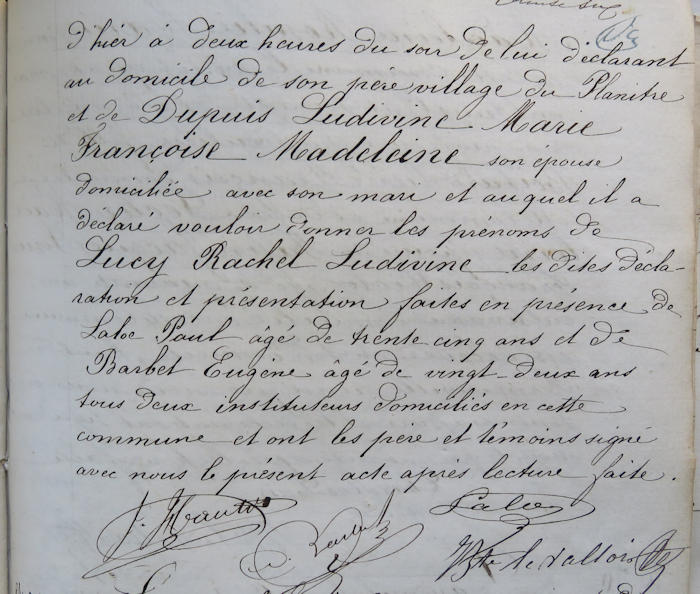 d'hier à deux heures du soir de lui déclarant
au domicile de son père village du Planitre
et de Dupuis Ludivine Marie
Françoise Madeleine son épouse
domiciliée avec son mari et auquel il a
déclaré vouloir donner les prénoms de
Lucy Rachel Ludivine les dites décla-
ration et présentation faites en présence de
Laloe Paul âgé de trente cinq ans et de
Barbet Eugène âgé de vingt-deux ans
tous deux instituteurs domiciliés en cette
commune et ont les père et témoins signé
avec nous le présent acte après lecture faite.
Laloe
le Vallois